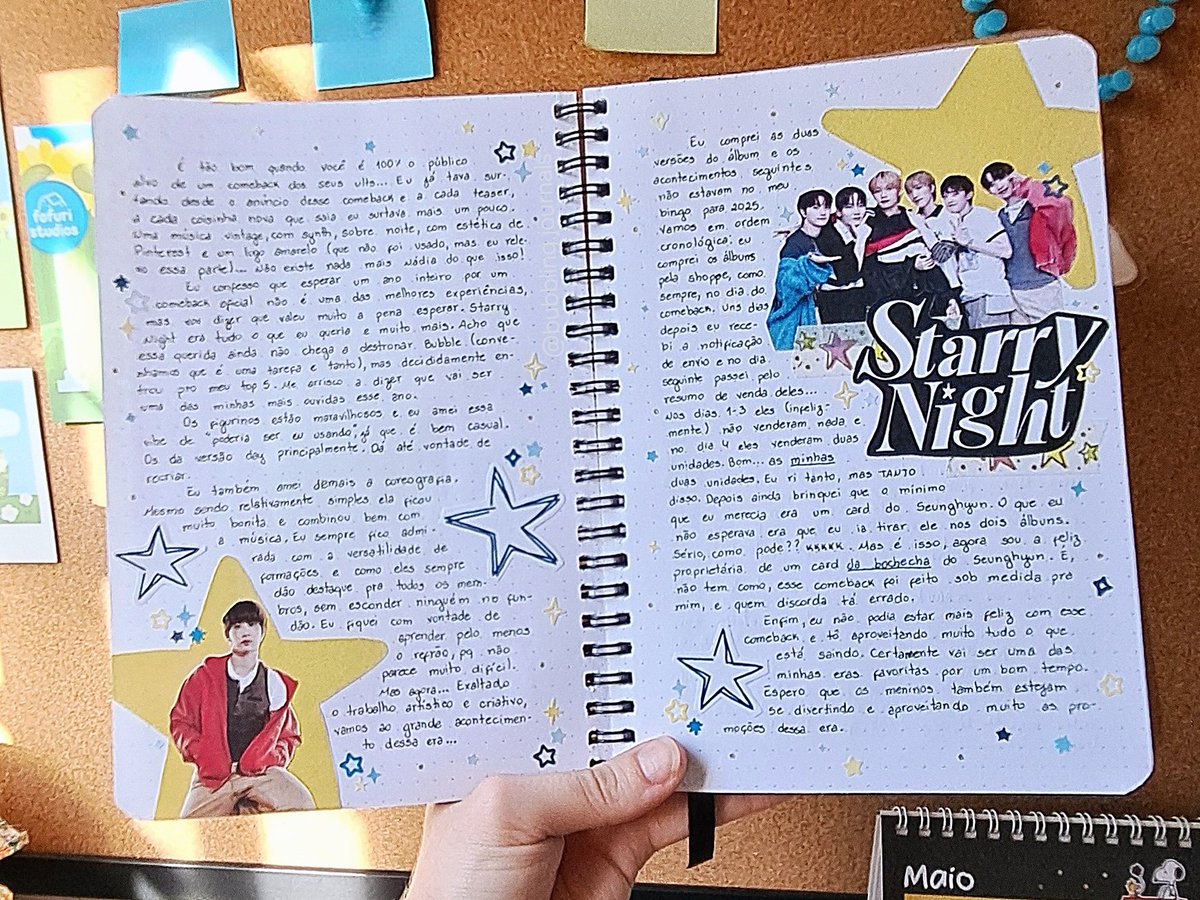 É tão bom quando você é 100% o público
alvo de um comeback dos seus ults... Eu já tava sur-
tando desde o anúncio desse comeback e a cada teaser,
a cada coisinha nova que saía eu surtava mais um pouco.
Uma música vintage, com synth, sobre noite, com estética de
Pinterest e um logo amarelo (que não foi usado, mas eu rele-
vo essa parte)... Não existe nada mais Nádia do que isso!
Eu confesso que esperar um ano inteiro por um
comeback oficial não é uma das melhores experiências,
mas vos dizer que valeu muito a pena esperar. Starry
Night era tudo o que eu queria e muito mais. Acho que
essa querida ainda não chega a destronar Bubble (conve-
nhamos que é uma tarefa e tanto), mas decididamente en-
trou pro meu top 5. Me arrisco a dizer que vai ser
uma das minhas mais ouvidas esse ano.
Os figurinos estão maravilhosos e eu amei essa
vibe de "poderia ser eu usando", já que é bem casual.
Os da versão day principalmente. Dá até vontade de
recriar.
Eu também amei demais a coreografia.
Mesmo sendo relativamente simples ela ficou
muito bonita e combinou bem com
a música. Eu sempre fico admi-
rada com a versatilidade de
formações e como eles sempre
dão destaque pra todos os mem-
bros, sem esconder ninguém no fun-
dão. Eu fiquei com vontade de
aprender pelo menos
o refrão, pq não
parece muito difícil.
Mas agora... Exaltado
o trabalho artístico e criativo,
vamos ao grande acontecimen-
to dessa era...
Eu comprei as duas
versões do álbum e os
acontecimentos seguintes
não estavam no meu
bingo para 2025.
Vamos em ordem
cronológica: eu
comprei os álbuns
pela shoppe, como
sempre, no dia do
comeback. Uns dias
depois eu rece-
bi a notificação
de envio e no dia
seguinte passei pelo
resumo de venda deles...
Nos dias 1-3 eles (infeliz-
mente) não venderam nada e
no dia 4 eles venderam duas
unidades. Bom... as minhas
duas unidades. Eu ri tanto, mas TANTO
disso. Depois ainda brinquei que o mínimo
que eu merecia era um card do Seunghyun. O que eu
não esperava era que eu ia tirar ele nos dois álbuns.
Sério, como pode?? kkkkk. Mas é isso, agora sou a feliz
proprietária de um card da bochecha do Seunghyun. E,
não tem como, esse comeback foi feito sob medida pra
mim, e quem discorda tá errado.
Enfim, eu não podia estar mais feliz com esse
comeback e tô aproveitando muito tudo o que
está saindo. Certamente vai ser uma das
minhas eras favoritas por um bom tempo.
Espero que os meninos também estejam
se divertindo e aproveitando muito as pro-
moções dessa era.
Starry
Night
fofuri
studios
Maio